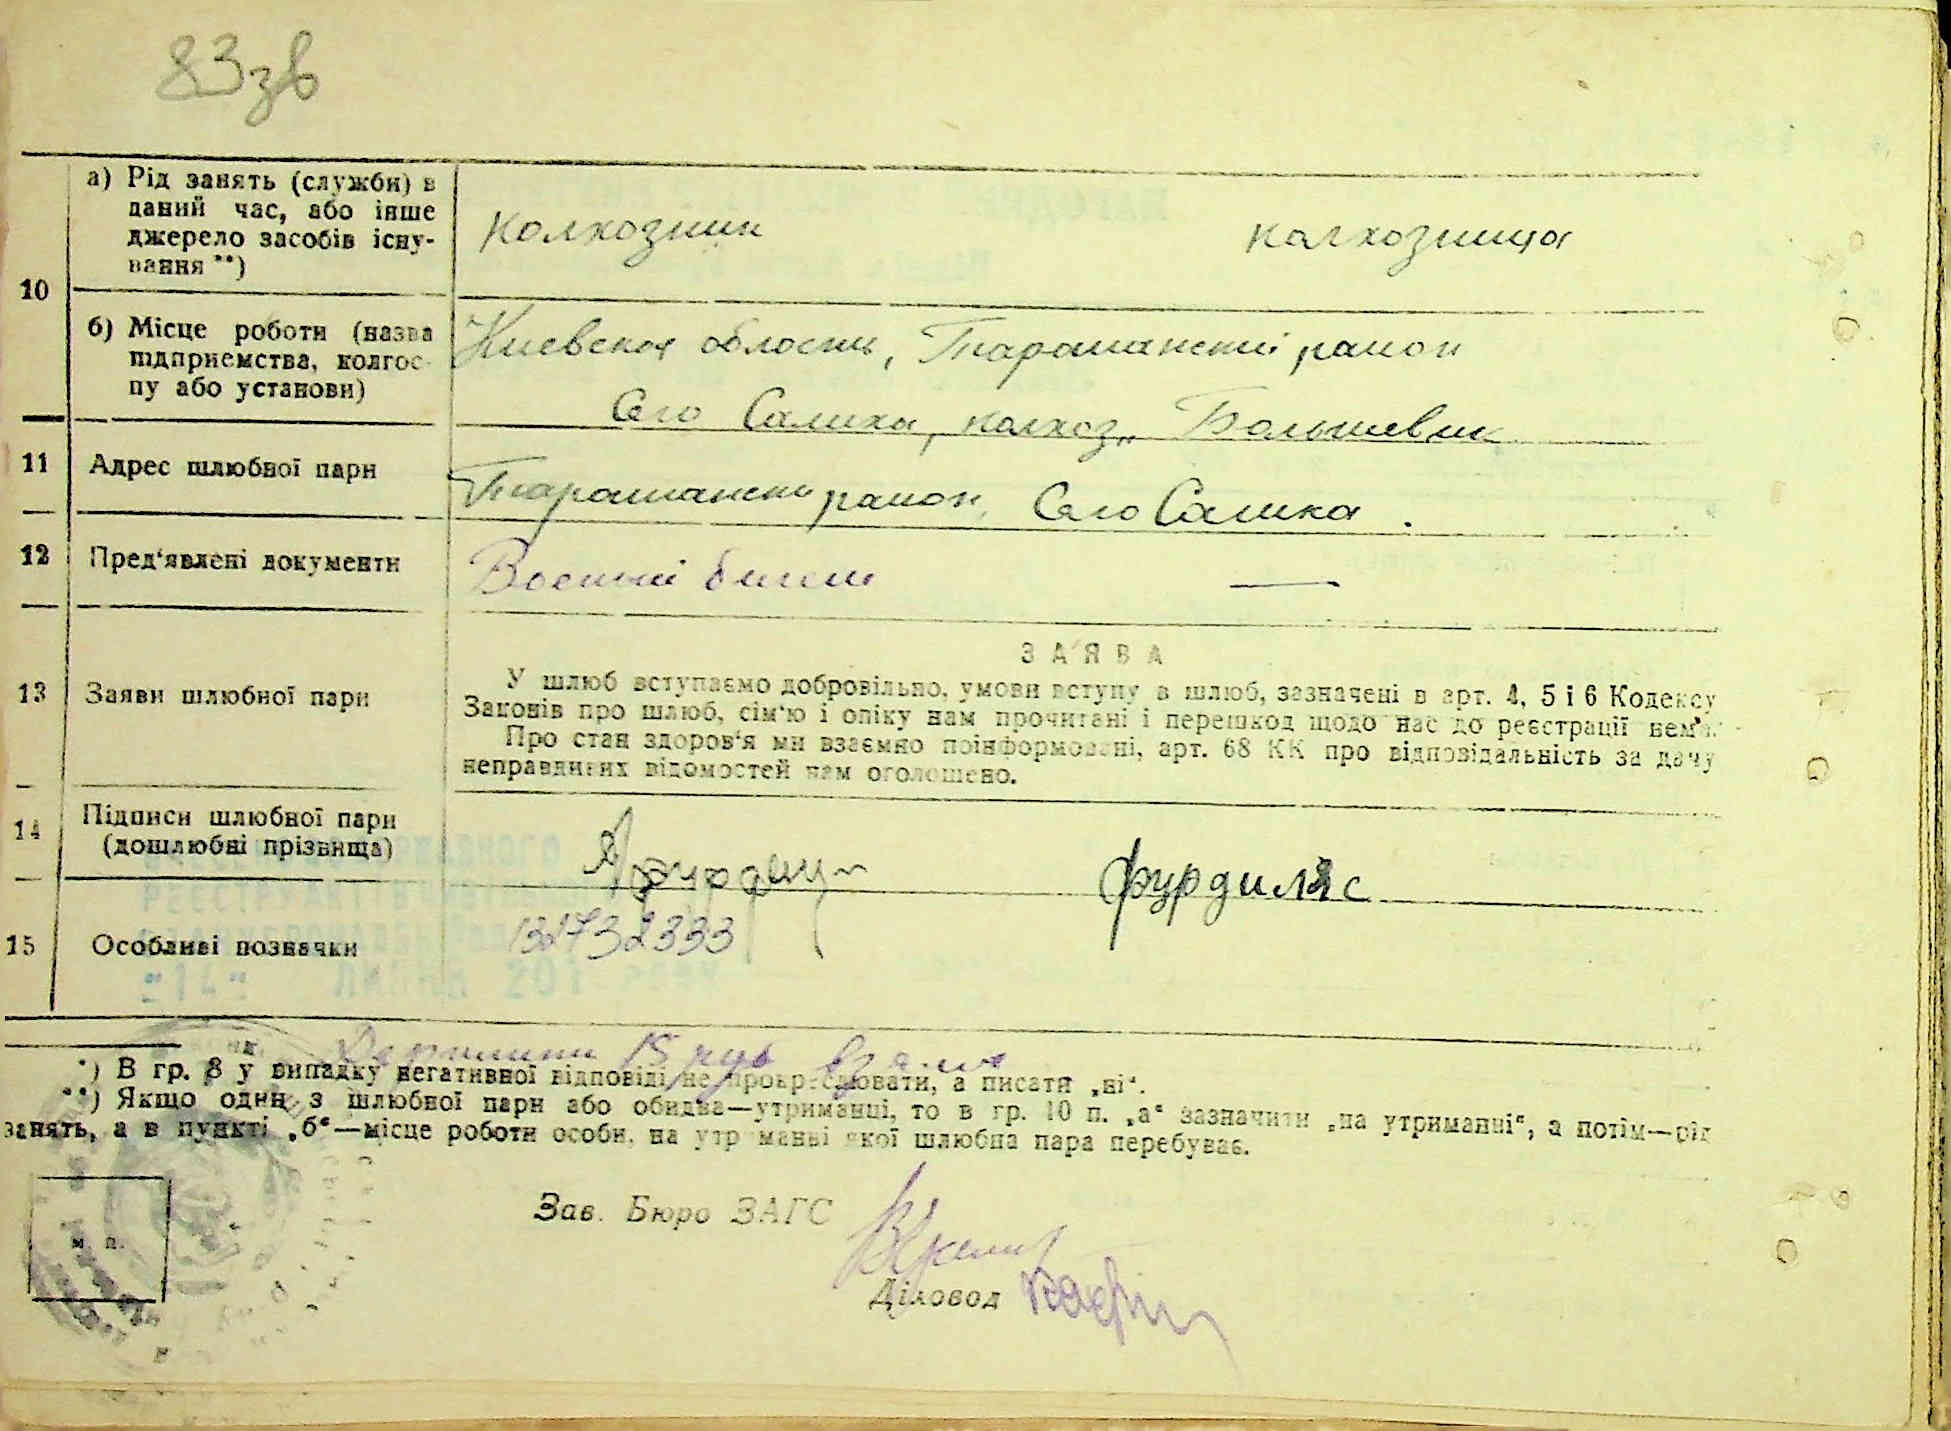 83зв
10
а) Рід занять (служби) в
даний час, або інше
джерело засобів існу-
вання **)
колхозник
колхозница
б) Місце роботи (назва
підприємства, колгос-
пу або установи)
Киевская область, Таращанский район
Село Салиха, колхоз „Большевик
11
Адрес шлюбної пари
Таращански район, Село Салиха.
12
Пред‘явлені документи
Военний билет
—
13
Заяви шлюбної пари
ЗАЯВА
У шлюб вступаємо добровільно, умови вступу в шлюб, зазначені в арт. 4, 5 і 6 Кодексу
Законів про шлюб, сім‘ю і опіку нам прочитані і перешкод щодо нас до реєстрації нем‘а.
Про стан здоров‘я ми взаємно поінформовані, арт. 68 КК про відповідальність за дачу
неправдивих відомостей нам оголошено.
14
Підписи шлюбної пари
(дошлюбні прізвища)
Фурдиляс
15
Особливі позначки
13732333
15 руб взято
*) В гр. 8 у випадку негативної відповіді не прокреслювати, а писати „ні“.
**) Якщо один з шлюбної пари або обидва—утриманці, то в гр. 10 п. „а“ зазначити „на утриманні“, а потім—рід
занять, а в пункті „б“—місце роботи особи, на утриманні якої шлюбна пара перебуває.
м. п.
Зав. Бюро ЗАГС
Діловод